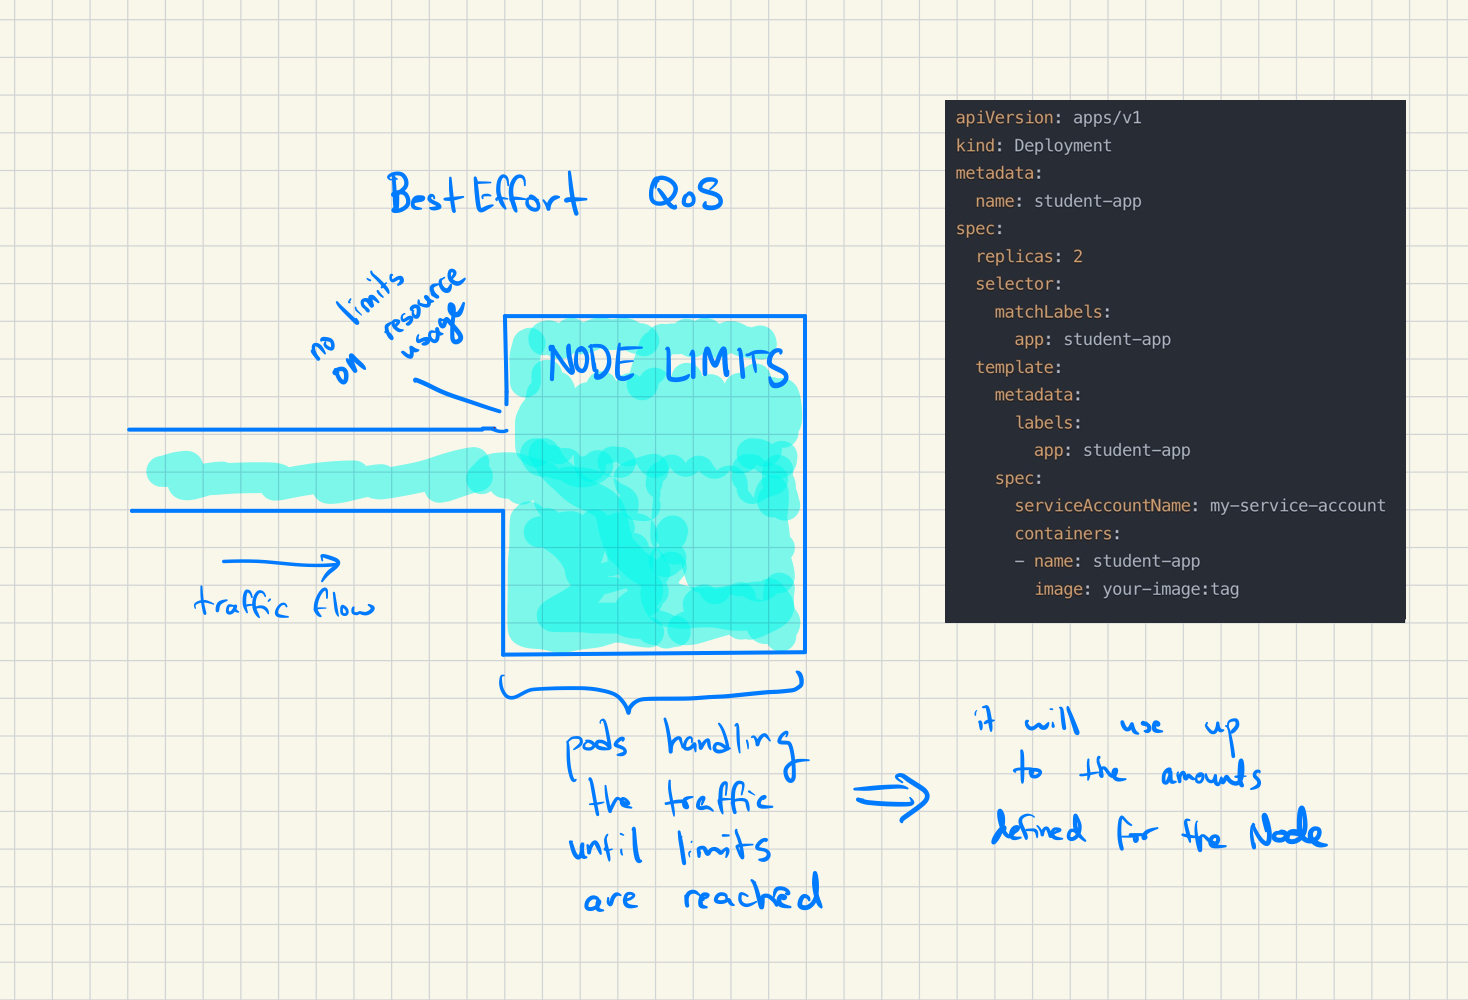 BestEffort QoS
no limits
on resource
usage
NODE LIMITS
traffic flow
pods handling
the traffic
until limits
are reached
it will use up
to the amounts
defined for the Node
apiVersion: apps/v1
kind: Deployment
metadata:
  name: student-app
spec:
  replicas: 2
  selector:
    matchLabels:
      app: student-app
  template:
    metadata:
      labels:
        app: student-app
    spec:
      serviceAccountName: my-service-account
      containers:
      - name: student-app
        image: your-image:tag